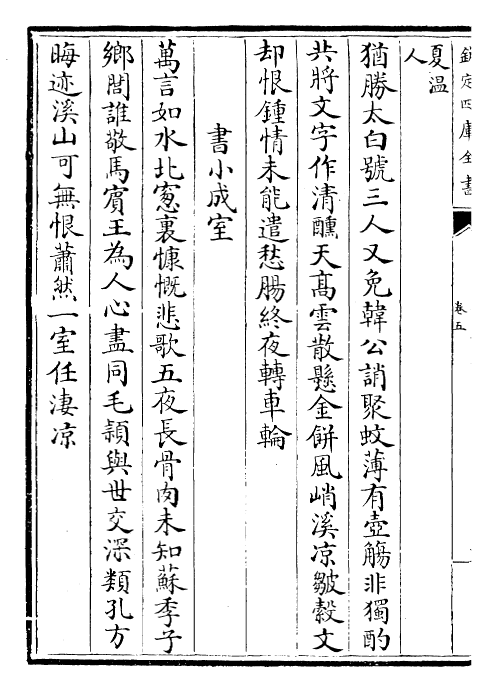 欽定四庫全書
卷五
夏温
人
猶勝太白號三人又免韓公誚聚蚊薄有壺觴非獨酌
共將文字作清醺天髙雲散懸金餅風峭溪凉皺縠文
却恨鍾情未能遣愁腸終夜轉車輪
書小成室
萬言如水北窻裏慷慨悲歌五夜長骨肉未知蘇季子
鄉閭誰敬馬賔王為人心盡同毛頴與世交深類孔方
晦迹溪山可無恨蕭然一室任淒凉